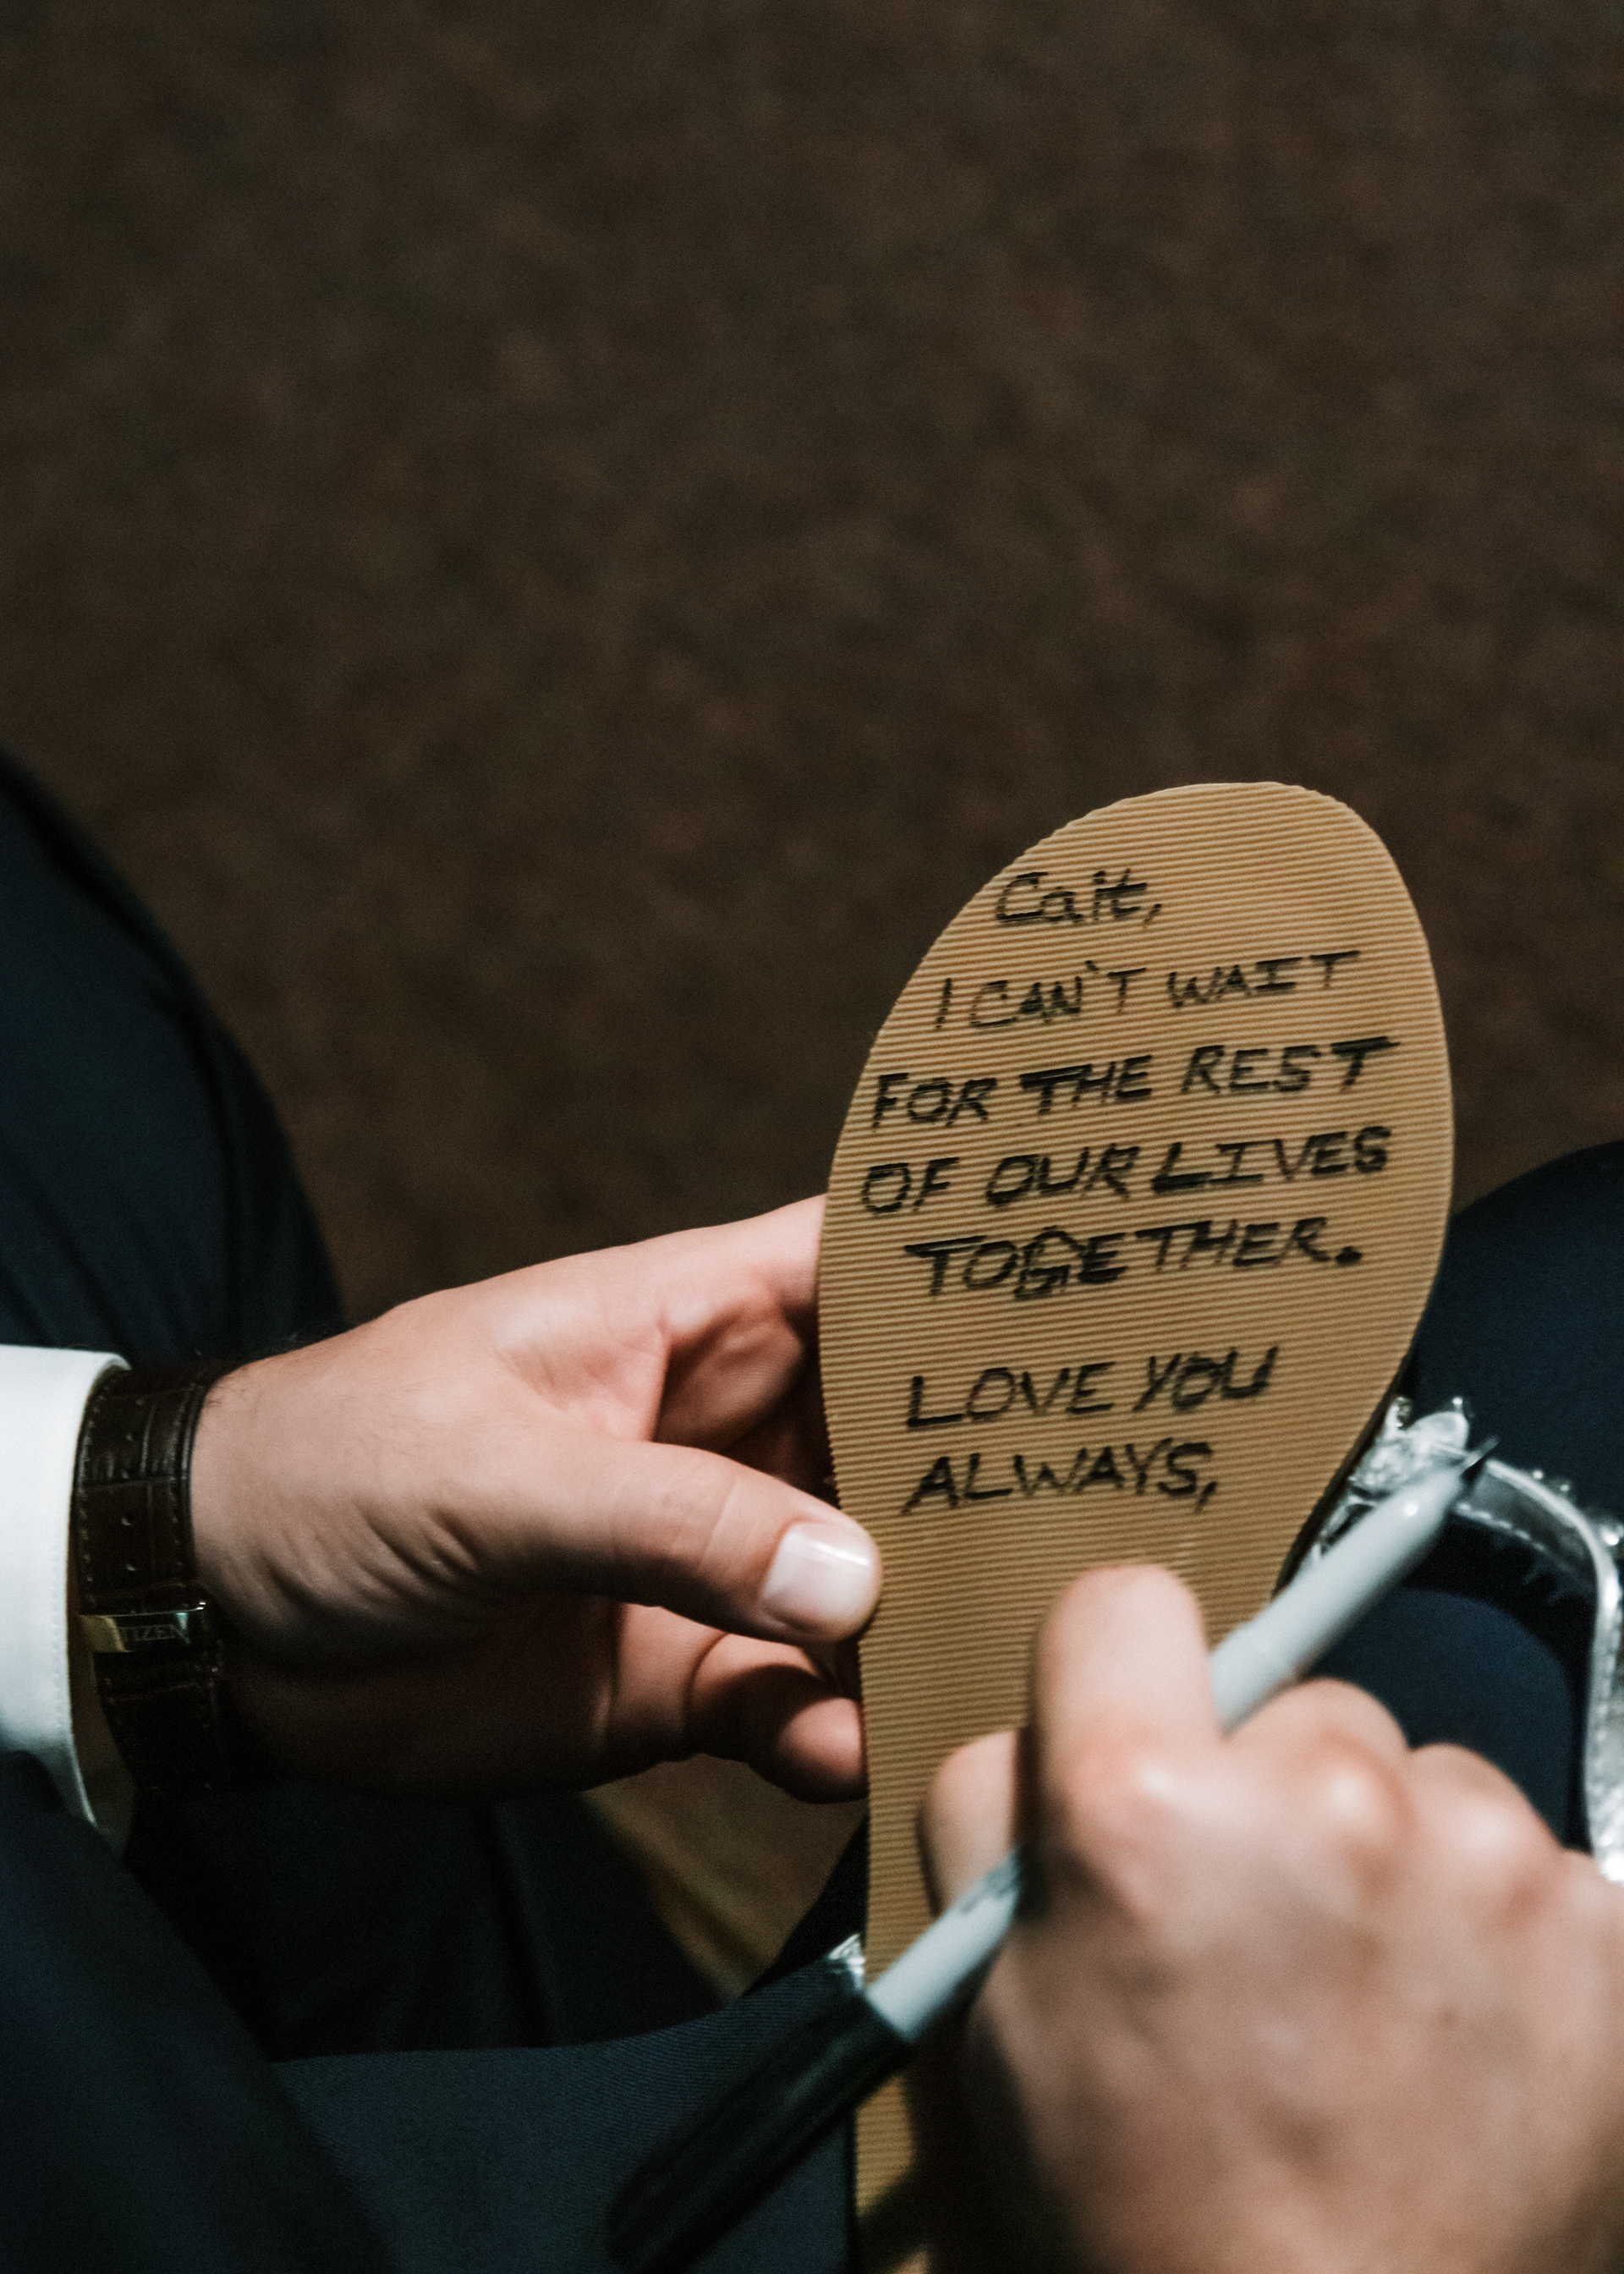 Cait,
I CAN'T WAIT
FOR THE REST
OF OUR LIVES
TOGETHER.
LOVE YOU
ALWAYS,
TIZEN